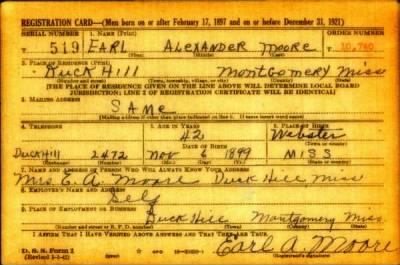 REGISTRATION CARD—(Men born on or after February 17, 1897 and on or before December 31, 1921)
SERIAL NUMBER 1. NAME (Print) ORDER NUMBER
T 519 EARL ALEXANDER MOORE T 10,760
(First) (Middle) (Last)
2. PLACE OF RESIDENCE (Print)
Duck Hill Montgomery Miss
(Number and street) (Town, township, village, or city) (County) (State)
[THE PLACE OF RESIDENCE GIVEN ON THE LINE ABOVE WILL DETERMINE LOCAL BOARD
JURISDICTION; LINE 2 OF REGISTRATION CERTIFICATE WILL BE IDENTICAL]
3. MAILING ADDRESS
SAME
[Mailing address if other than place indicated on line 2. If same insert word same]
4. TELEPHONE 5. AGE IN YEARS 6. PLACE OF BIRTH
42 Webster
DATE OF BIRTH (Town or county)
Duck Hill 2472 Nov 6 1899 MISS
(Exchange) (Number) (Mo.) (Day) (Yr.) (State or country)
7. NAME AND ADDRESS OF PERSON WHO WILL ALWAYS KNOW YOUR ADDRESS
Mrs. E. A. Moore Duck Hill Miss
8. EMPLOYER'S NAME AND ADDRESS
Self
9. PLACE OF EMPLOYMENT OR BUSINESS
Duck Hill Montgomery Miss.
(Number and street or R. F. D. number) (Town) (County) (State)
I AFFIRM THAT I HAVE VERIFIED ABOVE ANSWERS AND THAT THEY ARE TRUE.
D. S. S. Form 1 Earl A. Moore
(Revised 1-1-42) (Registrant's signature)